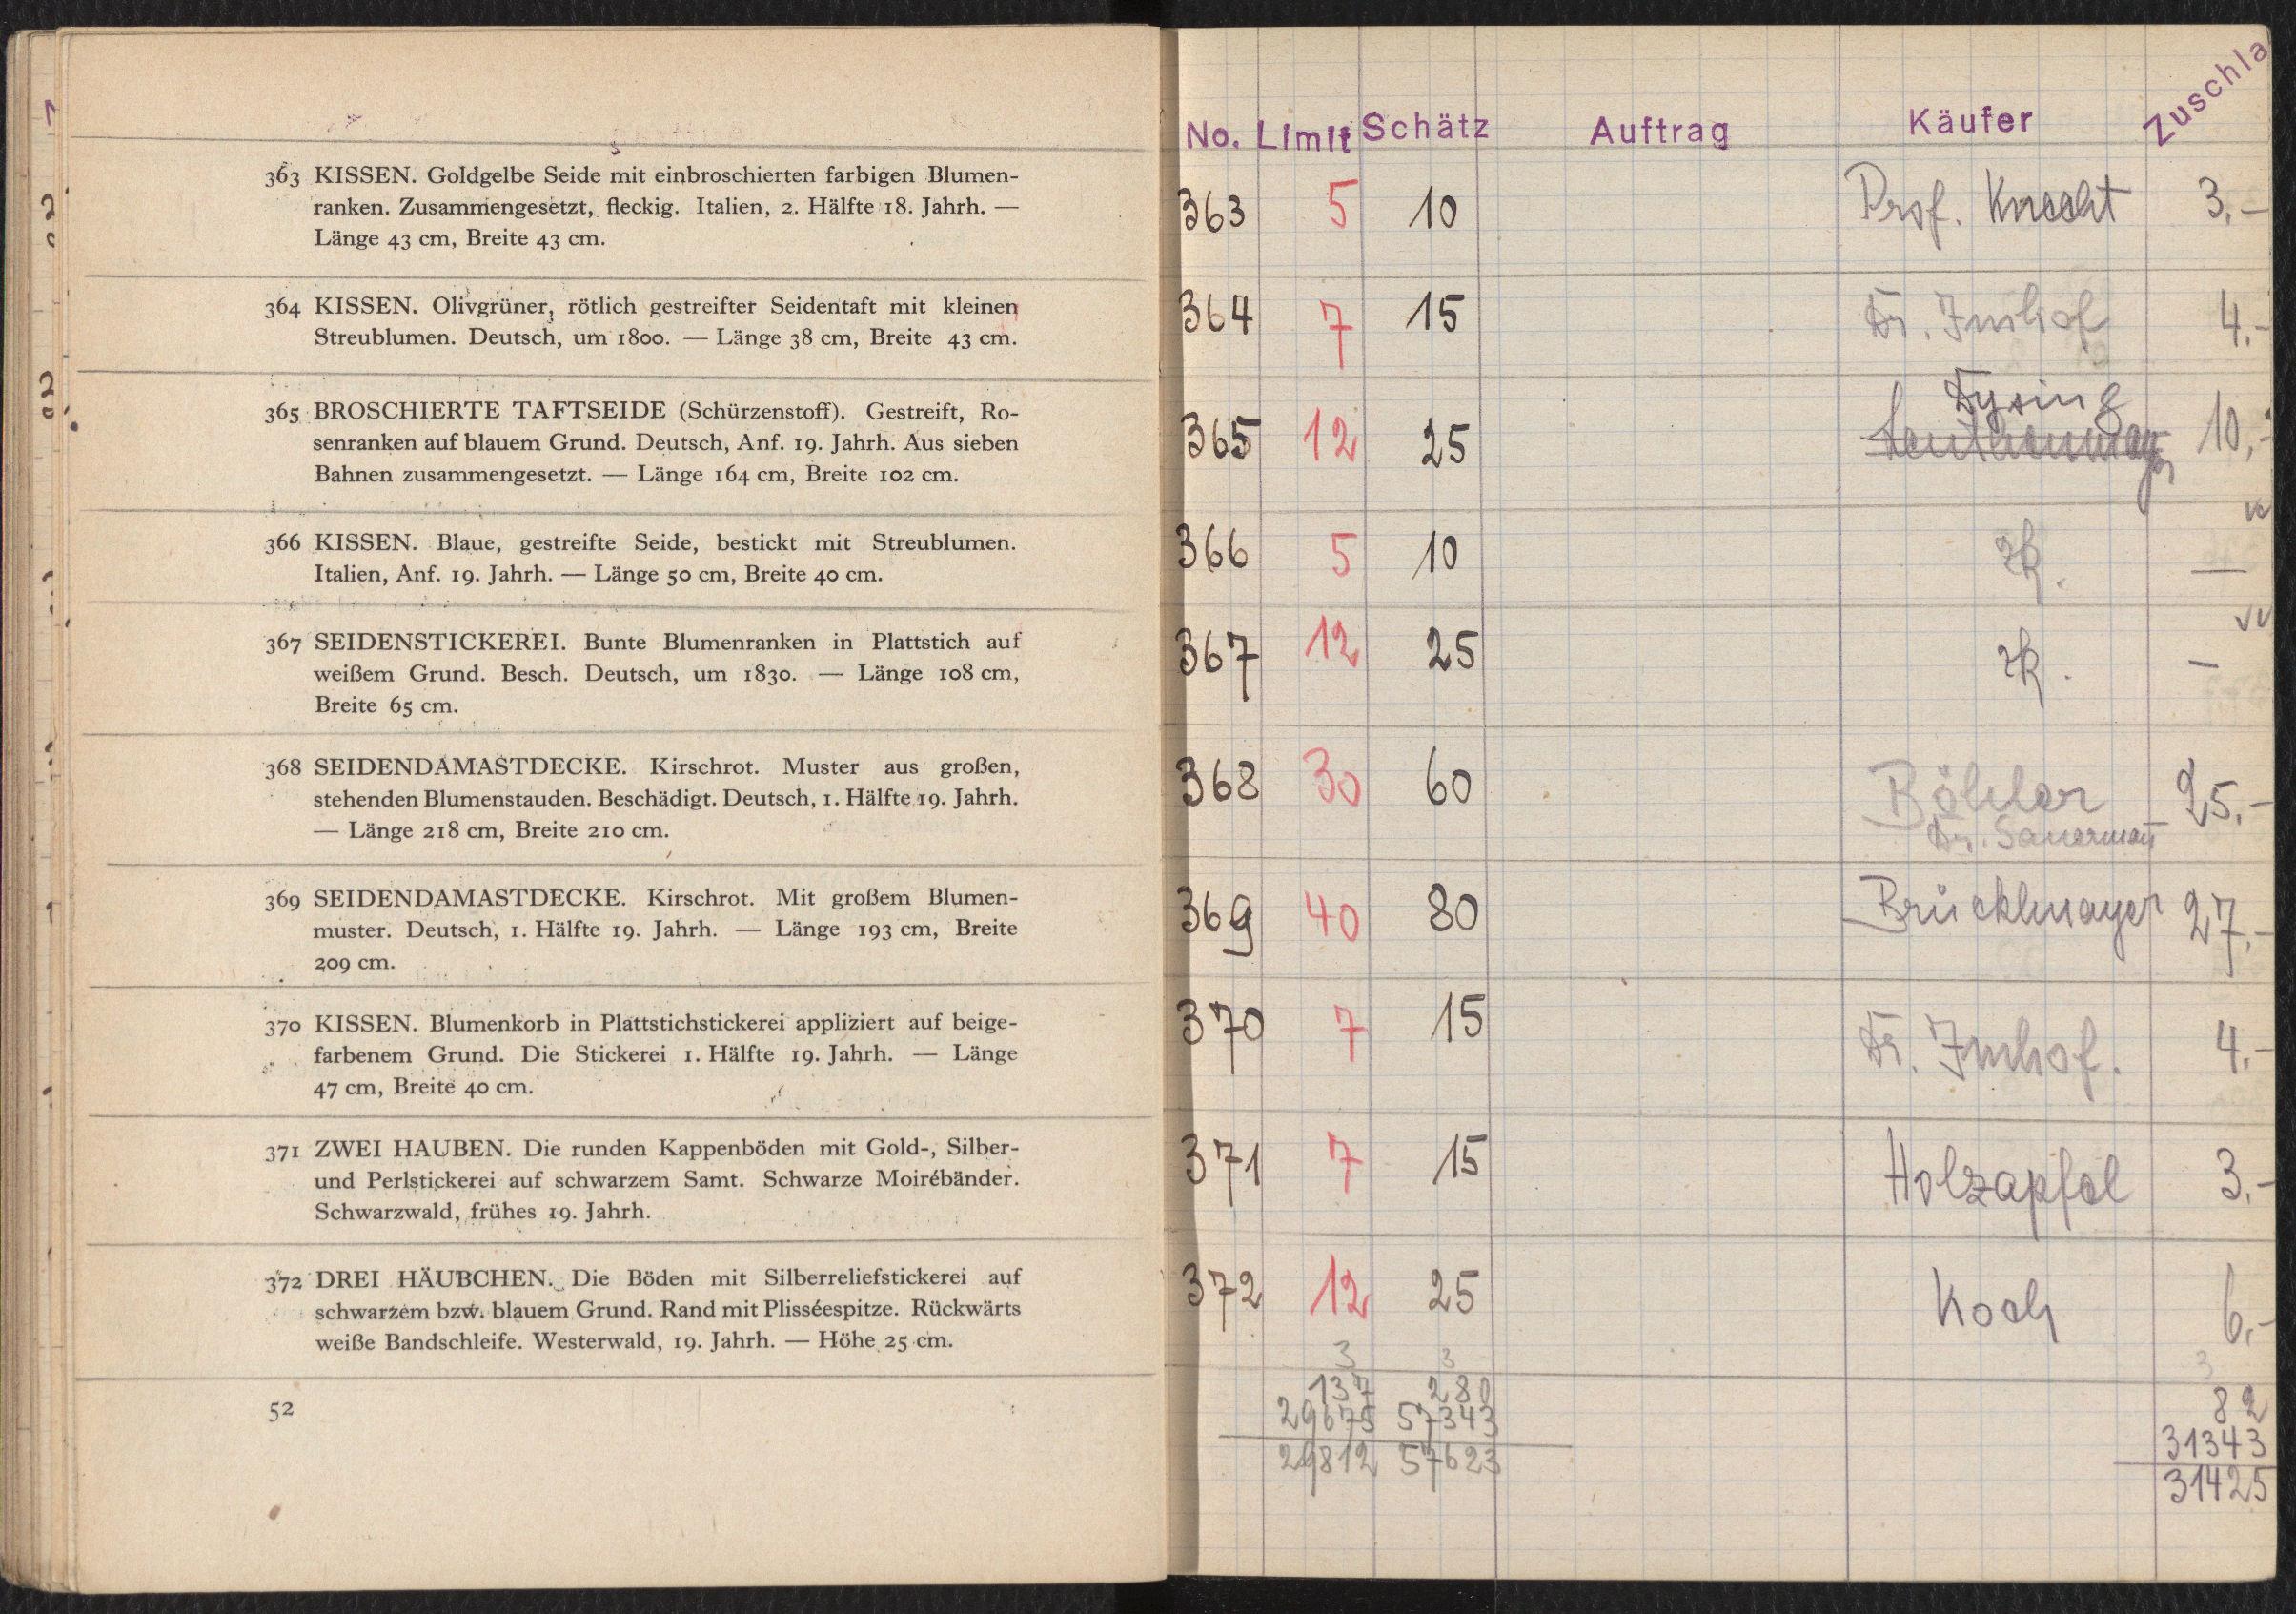 363 KISSEN. Goldgelbe Seide mit einbroschierten farbigen Blumen-
ranken. Zusammengesetzt, fleckig. Italien, 2. Hälfte 18. Jahrh. —
Länge 43 cm, Breite 43 cm.
364 KISSEN. Olivgrüner, rötlich gestreifter Seidentaft mit kleinen
Streublumen. Deutsch, um 1800. — Länge 38 cm, Breite 43 cm.
365 BROSCHIERTE TAFTSEIDE (Schürzenstoff). Gestreift, Ro-
senranken auf blauem Grund. Deutsch, Anf. 19. Jahrh. Aus sieben
Bahnen zusammengesetzt. — Länge 164 cm, Breite 102 cm.
366 KISSEN. Blaue, gestreifte Seide, bestickt mit Streublumen.
Italien, Anf. 19. Jahrh. — Länge 50 cm, Breite 40 cm.
367 SEIDENSTICKEREI. Bunte Blumenranken in Plattstich auf
weißem Grund. Besch. Deutsch, um 1830. — Länge 108 cm,
Breite 65 cm.
368 SEIDENDAMASTDECKE. Kirschrot. Muster aus großen,
stehenden Blumenstauden. Beschädigt. Deutsch, 1. Hälfte 19. Jahrh.
— Länge 218 cm, Breite 210 cm.
369 SEIDENDAMASTDECKE. Kirschrot. Mit großem Blumen-
muster. Deutsch, 1. Hälfte 19. Jahrh. — Länge 193 cm, Breite
209 cm.
370 KISSEN. Blumenkorb in Plattstichstickerei appliziert auf beige-
farbenem Grund. Die Stickerei 1. Hälfte 19. Jahrh. — Länge
47 cm, Breite 40 cm.
371 ZWEI HAUBEN. Die runden Kappenböden mit Gold-, Silber-
und Perlstickerei auf schwarzem Samt. Schwarze Moirébänder.
Schwarzwald, frühes 19. Jahrh.
372 DREI HÄUBCHEN. Die Böden mit Silberreliefstickerei auf
schwarzem bzw. blauem Grund. Rand mit Plisséespitze. Rückwärts
weiße Bandschleife. Westerwald, 19. Jahrh. — Höhe 25 cm.
52
No. Limit Schätz Auftrag Käufer Zuschla
363 5 10 Prof. Knecht 3.-
364 7 15 Dr. Imhof 4.-
365 12 25 10,-
366 5 10 zk. —
367 12 25 zk. —
368 30 60 Böhler 25.-
Dr. Sauermann
369 40 80 Brücklmayer 27.-
370 7 15 Dr. Imhof. 4.-
371 7 15 Holzapfel 3.-
372 12 25 Koch 6.-
3 3 3
137 280 82
29675 57343 31343
29812 57623 31425